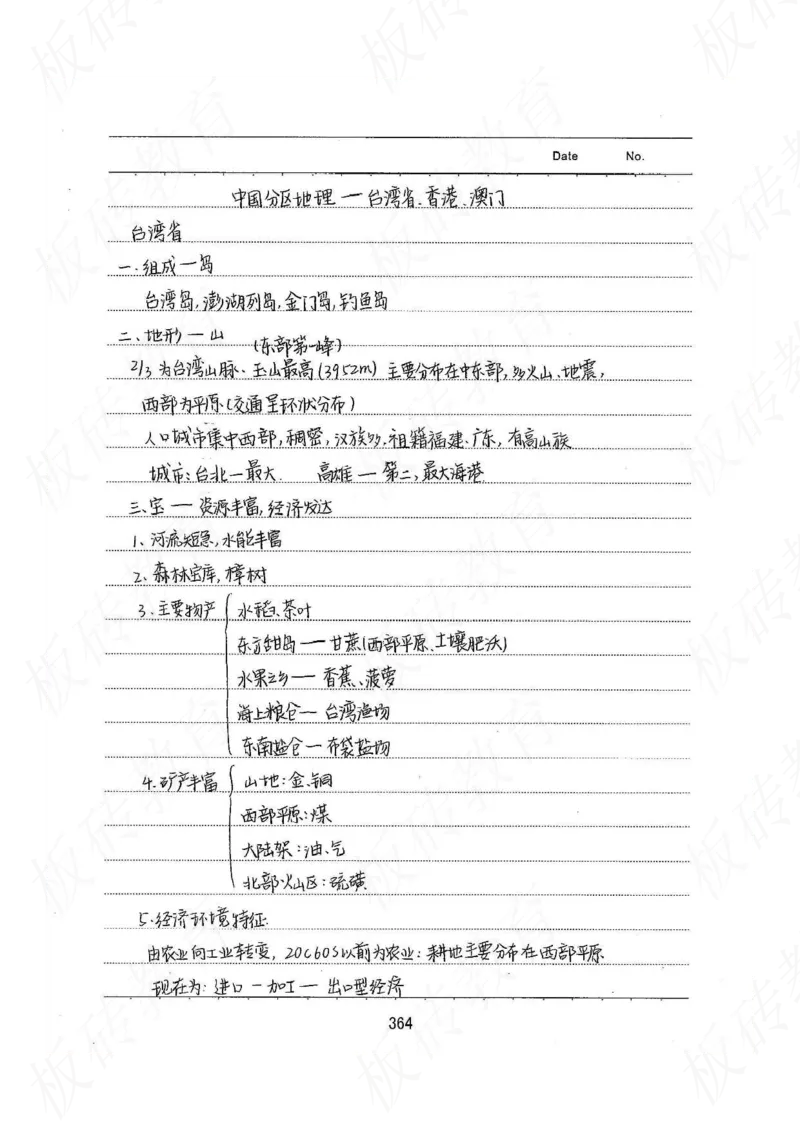 Date No.
中国分区地理一台湾省、香港、澳门
台湾省
一.组成一岛
台湾岛,澎湖列岛,金门岛,钓鱼岛
二、地形一山 (东部第一峰)
2/3 为台湾山脉、玉山最高(3952m) 主要分布在中东部,多火山、地震,
西部为平原(交通呈环状分布)
人口城市集中西部,稠密,汉族多.祖籍福建、广东,有高山族
城市:台北一最大. 高雄一第二,最大海港
三、宝一资源丰富,经济发达
1、河流短急,水能丰富
2、森林宝库,樟树
3.主要物产 水稻、茶叶
东方甜岛一甘蔗(西部平原、土壤肥沃)
水果之乡一香蕉、菠萝
海上粮仓一台湾渔场
东南盐仓一布袋盐场
4.矿产丰富 山地:金、铜
西部平原:煤
大陆架:油、气
北部火山区:硫磺
5.经济环境特征:
由农业向工业转变,20C60S以前为农业:耕地主要分布在西部平原
现在为:进口一加工一出口型经济
364
板砖教育